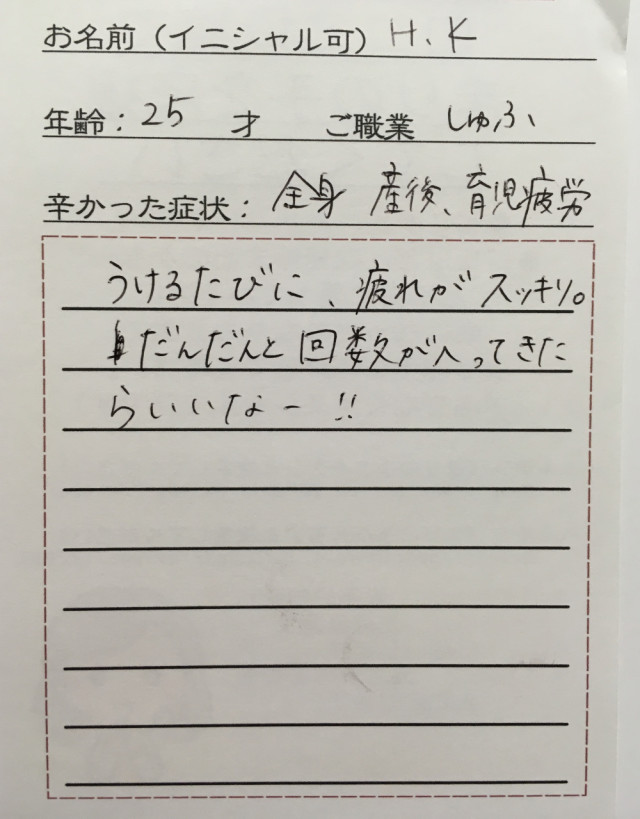 お名前（イニシャル可）H.K
年齢：25 才 ご職業 しゅふ
辛かった症状：全身 産後、育児疲労
うけるたびに、疲れがスッキリ。
だんだんと回数がへってきた
らいいなー!!